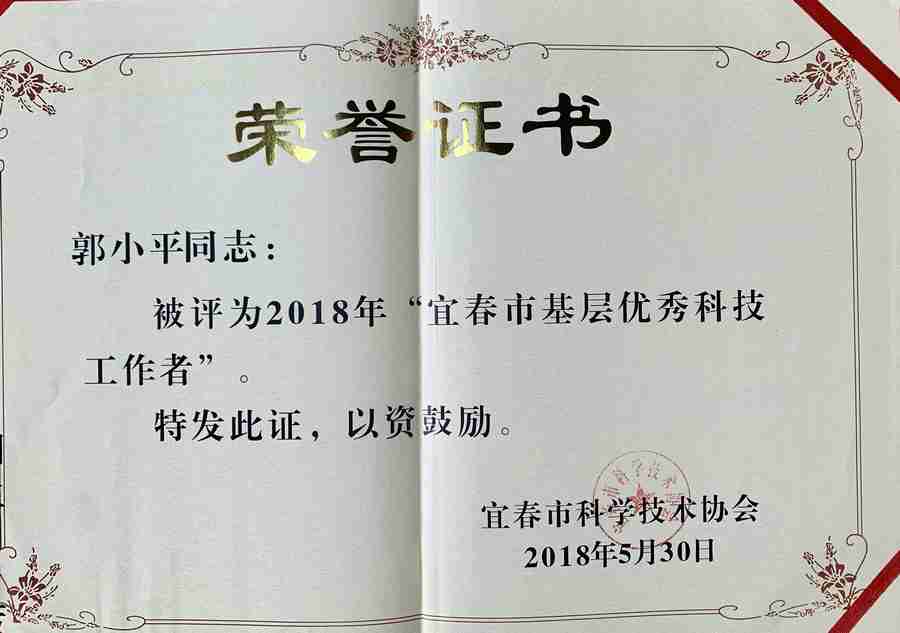 荣誉证书
郭小平同志：
被评为2018年“宜春市基层优秀科技
工作者”。
特发此证，以资鼓励。
宜春市科学技术协会
2018年5月30日